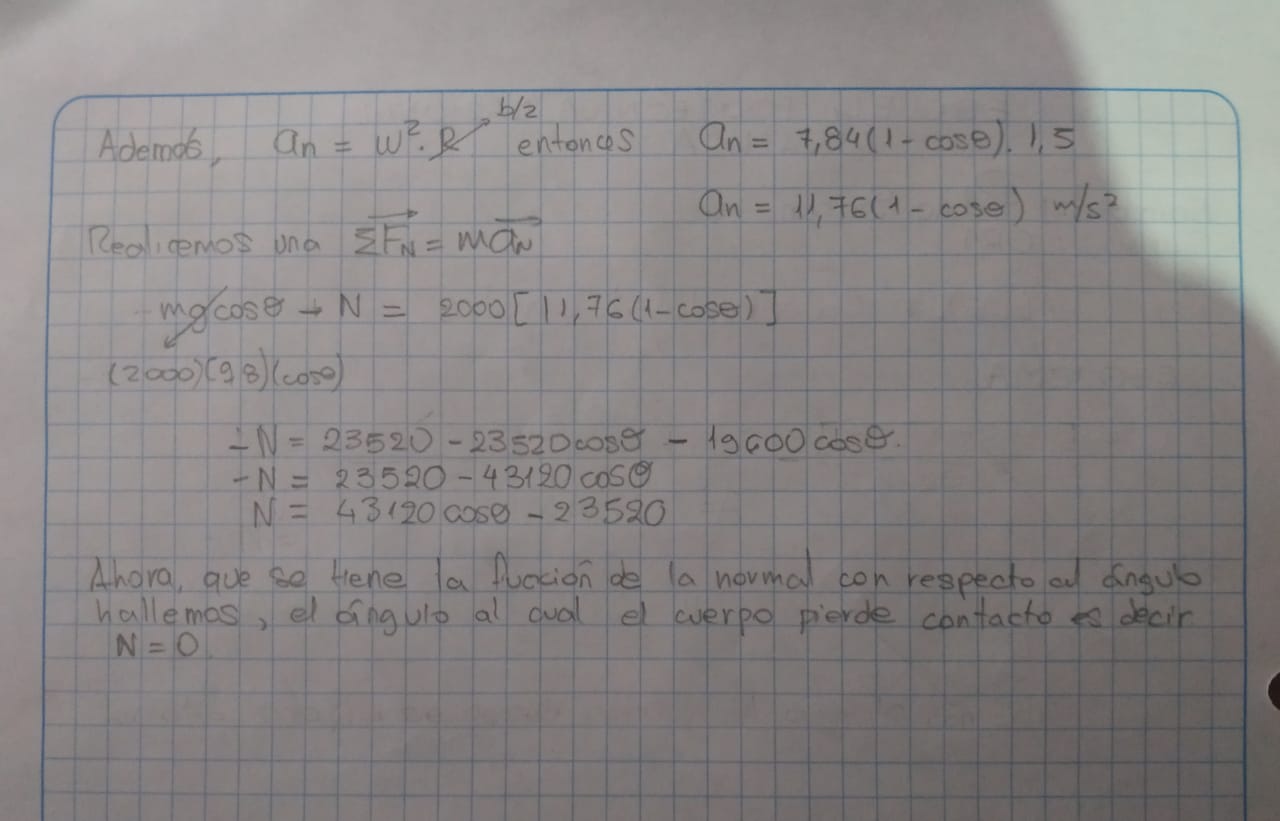 Además, an = w². R b/2 entonces an = 7,84(1 - cosθ). 1,5
an = 11,76(1 - cosθ) m/s²
Realicemos una ΣFN = maN
mgcosθ - N = 2000[11,76(1-cosθ)]
(2000)(9,8)(cosθ)
-N = 23520 - 23520cosθ - 19600cosθ.
-N = 23520 - 43120cosθ
N = 43120cosθ - 23520
Ahora, que se tiene la función de la normal con respecto al ángulo
hallemos, el ángulo al cual el cuerpo pierde contacto es decir
N = 0